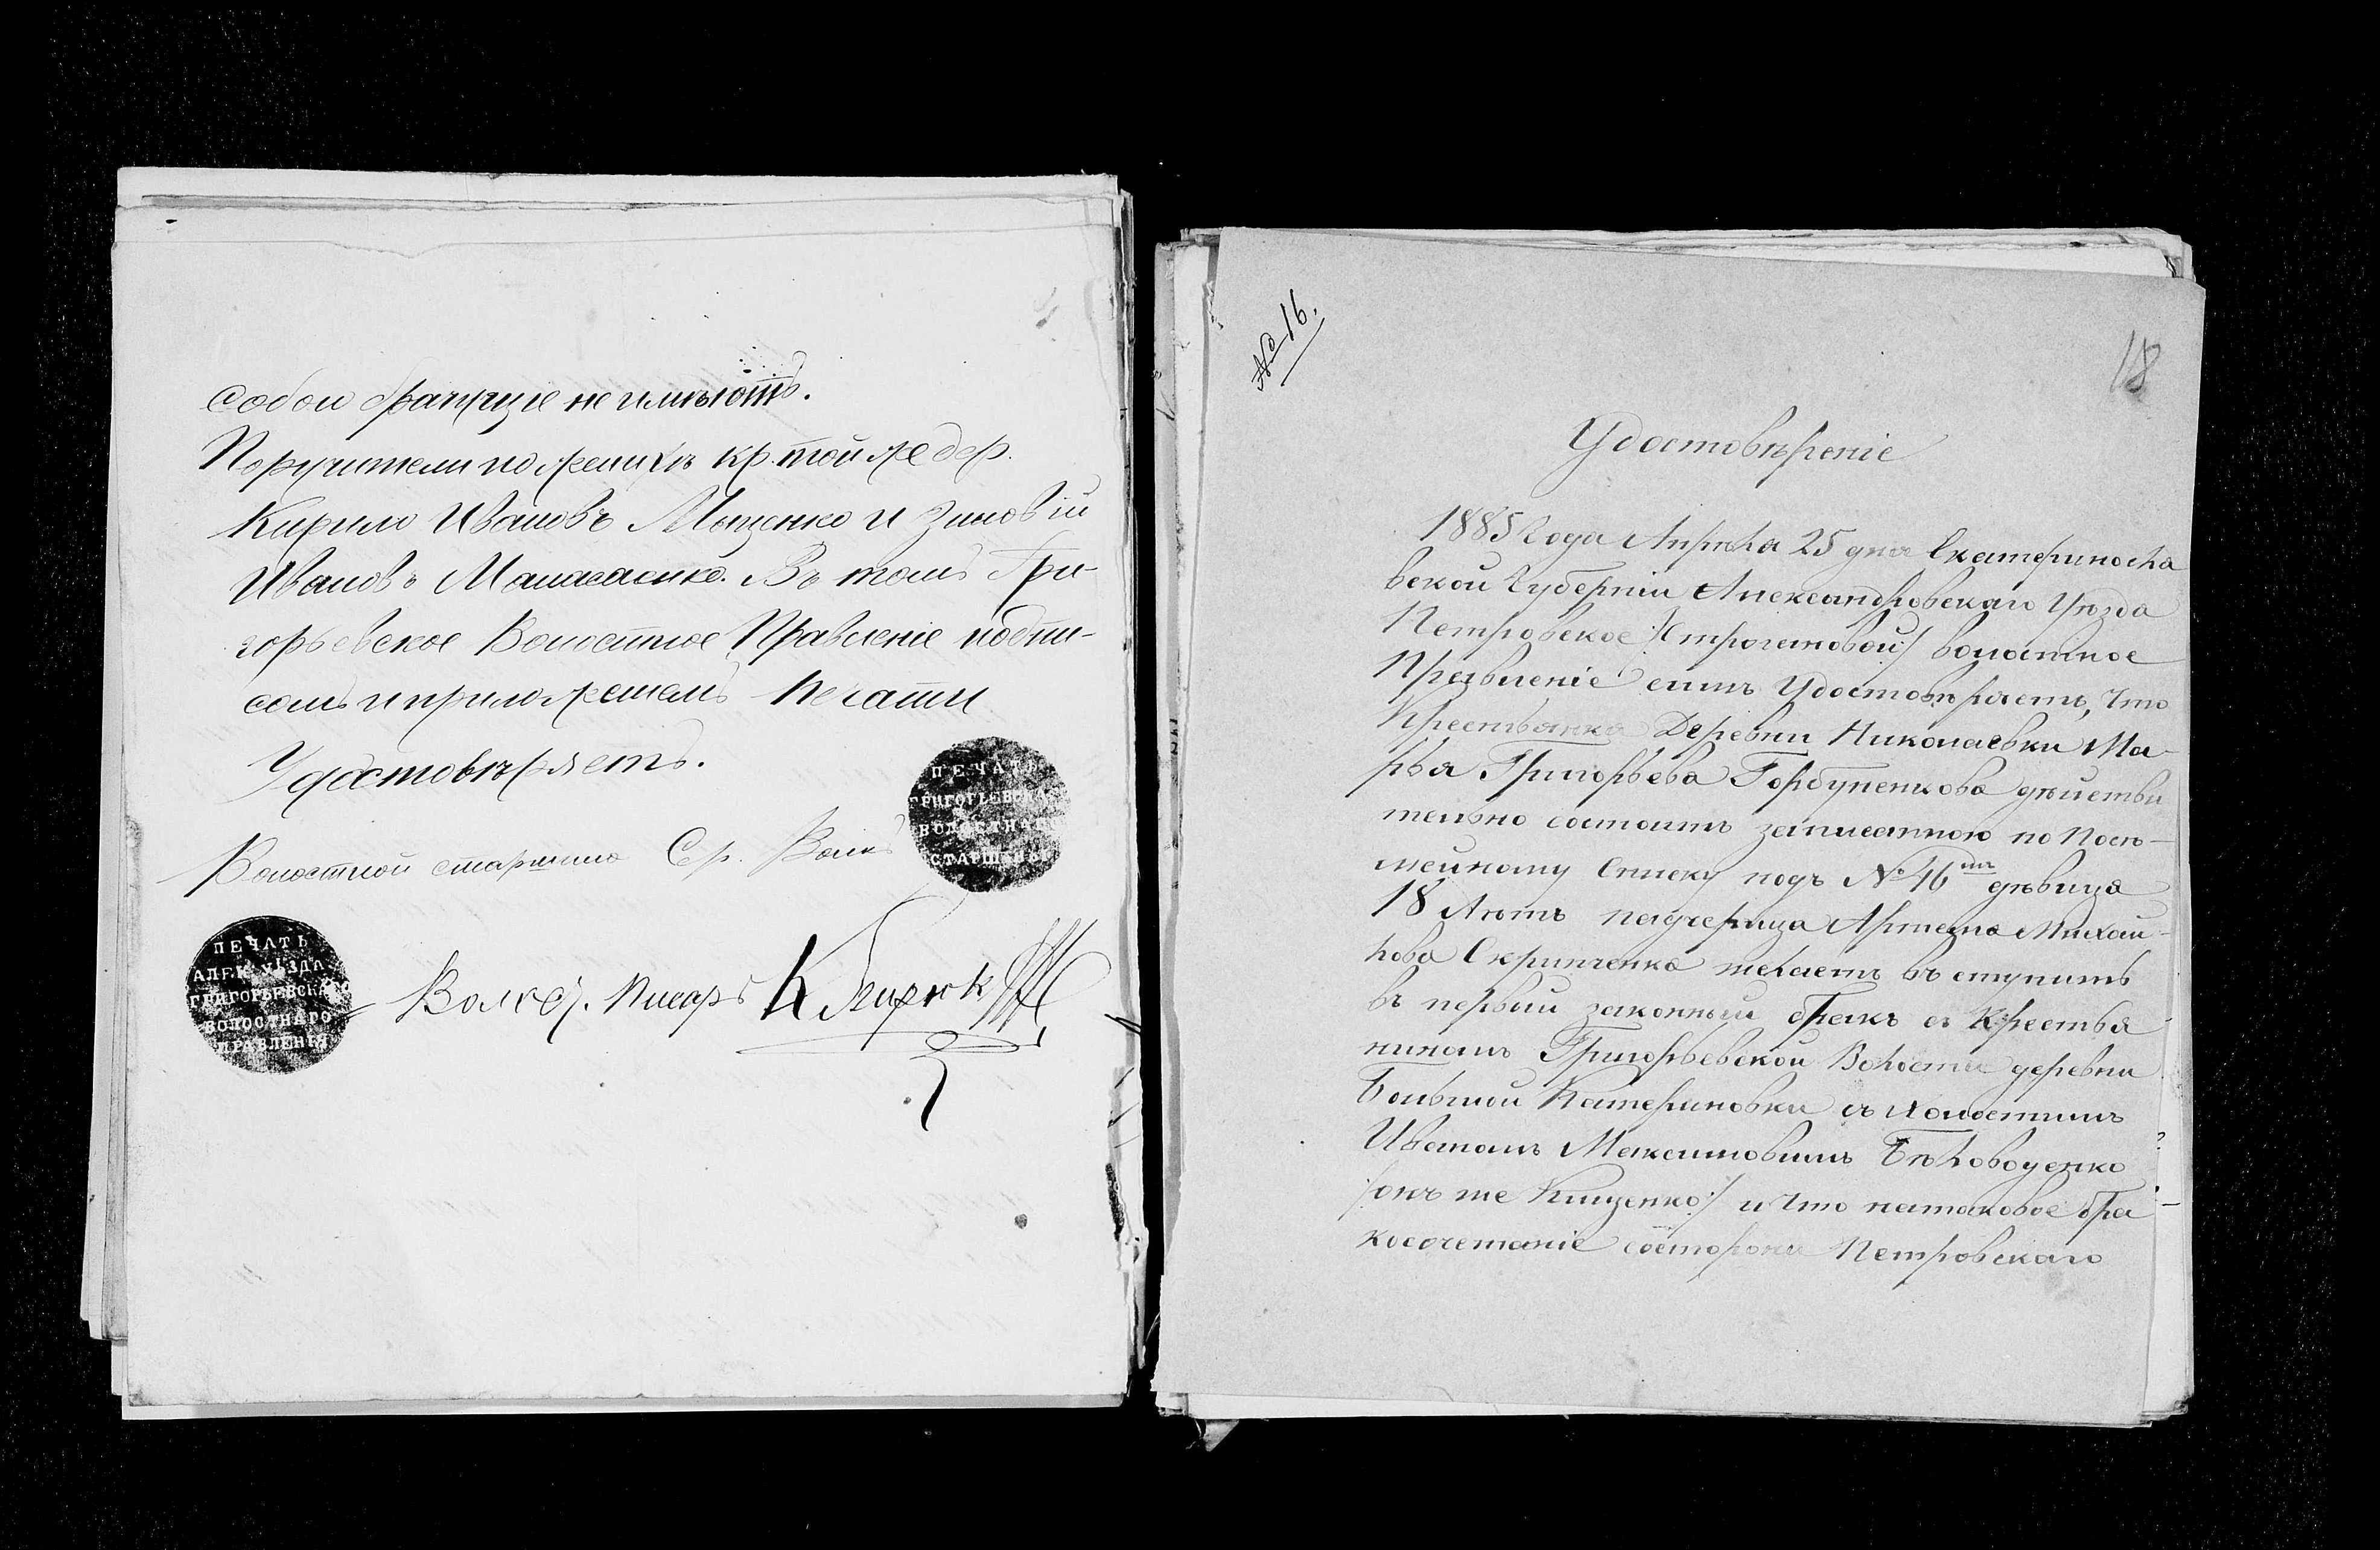 собои франции не имѣютъ.
Поручители по женихѣ кр. той же дер.
Кирило Ивановъ Мыщенко и Зиновій
Ивановъ Манасенко. Въ томъ Гри-
горьевское Волостное Правленіе подпи-
сомъ и приложеніемъ печати
Удостовѣряетъ.
Волостной старшина Ср.
ПЕЧАТЬ
ГРИГОРЬЕВСКАГО
ВОЛОСТНАГО
СТАРШИНЫ
ПЕЧАТЬ
АЛЕК. УѢЗДА
ГРИГОРЬЕВСКАГО
ВОЛОСТНАГО
ПРАВЛЕНІЯ
Волост. Писарь
№ 16.
18
Удостовѣреніе
1885 Года Апрѣля 25 дня Екатериносла
вской Губерніи Александровскаго Уѣзда
Петровское волостное
Правленіе симъ Удостовѣряетъ, что
Крестьянка Деревни Николаевки Ма-
рья Григорьева Горбуненкова дѣйстви
тельно состоитъ записанною по Посѣ-
мейному Списку подъ № 46 дѣвица
18 Лѣтъ падчерица Артема Михай-
лова Скрипченка желаетъ въ ступить
въ первый законный бракъ съ Крестья-
ниномъ Григорьевской Волости деревни
Большой Катериновки съ холостимъ
Иваномъ Максимовимъ Бѣловоденко
/:онъ же Кищенко:/ и что натаковое бра-
косочетаніе состороны Петровскаго